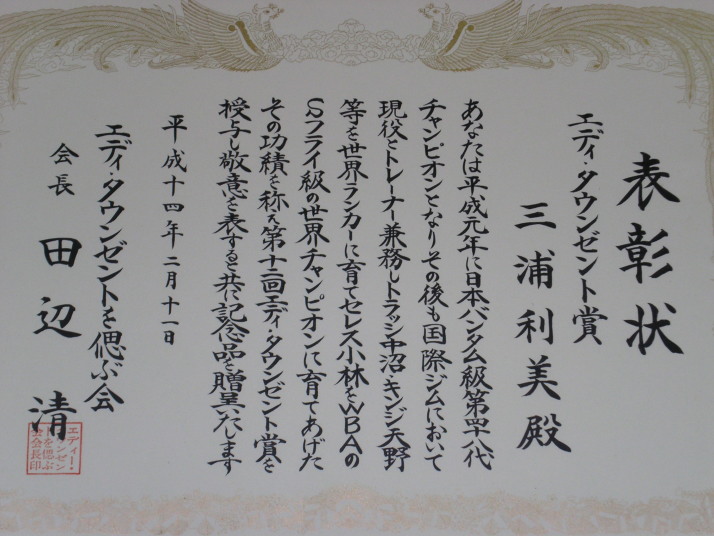 表彰状
エディ・タウンゼント賞
三浦利美殿
あなたは平成元年に日本バンタム級第四八代
チャンピオンとなりその後も国際ジムにおいて
現役とトレーナー兼務しトラッシュ中沼・キンジ天野
等を世界ランカーに育てセレス小林をWBAの
Sフライ級の世界チャンピオンに育てあげた
その功績を称え第十二回エディ・タウンゼント賞を
授与し敬意を表すると共に記念品を贈呈いたします
平成十四年二月十一日
エディ・タウンゼントを偲ぶ会
会長 田辺清
エディー・
タウンゼン
トを偲ぶ
会会長印